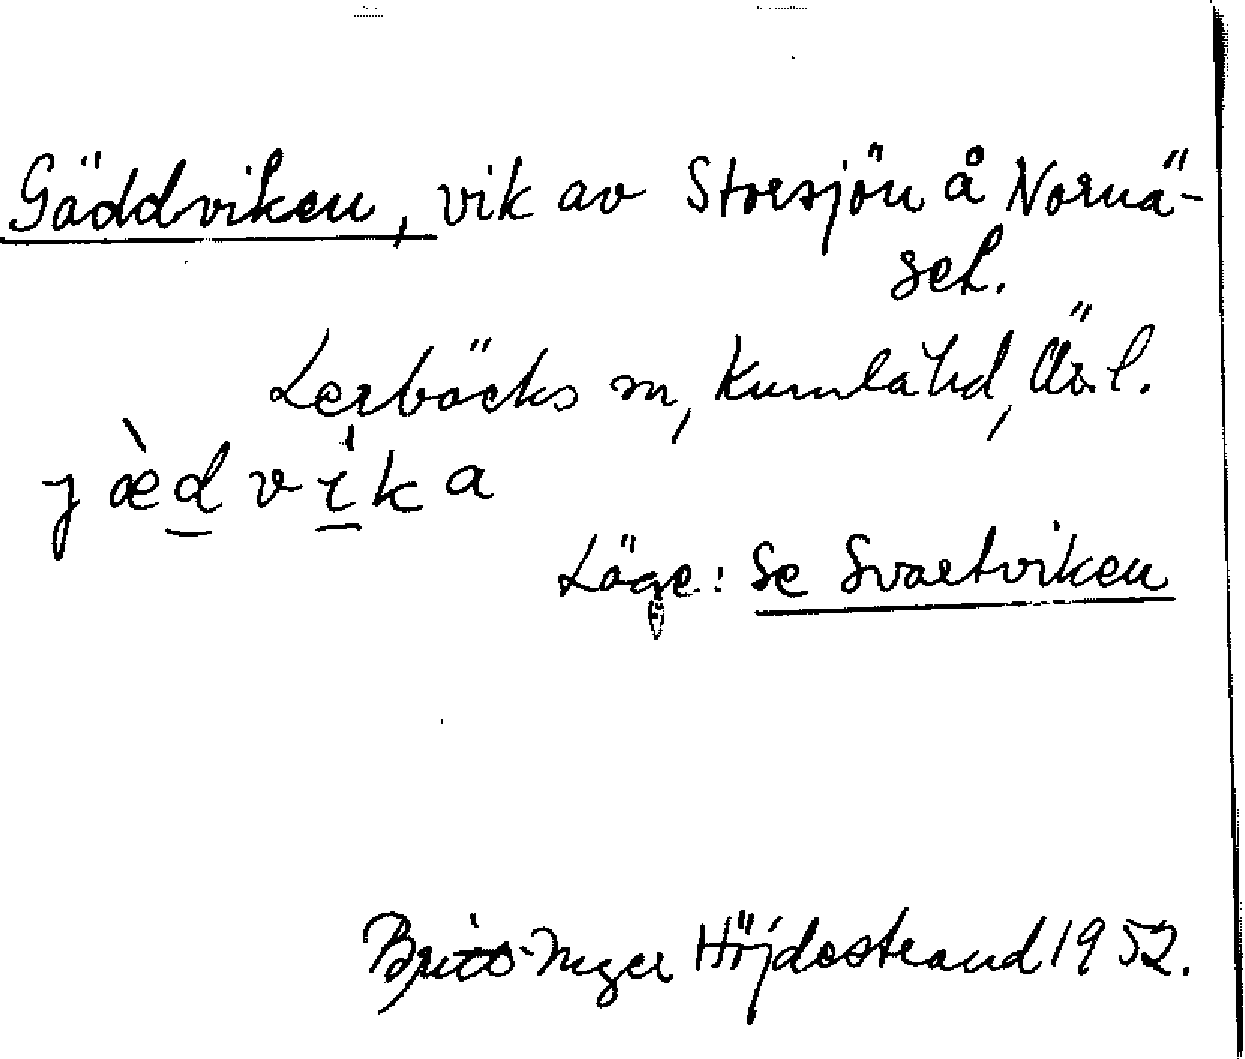 Gäddviken, vik av Storsjön å Nornä-
sel.
Lerbäcks sn, Kumla hd, Ör. l.
jæ̀d̲vi̲ka
Läge: Se Svartviken
Britt-Inger Höjdestrand 1952.